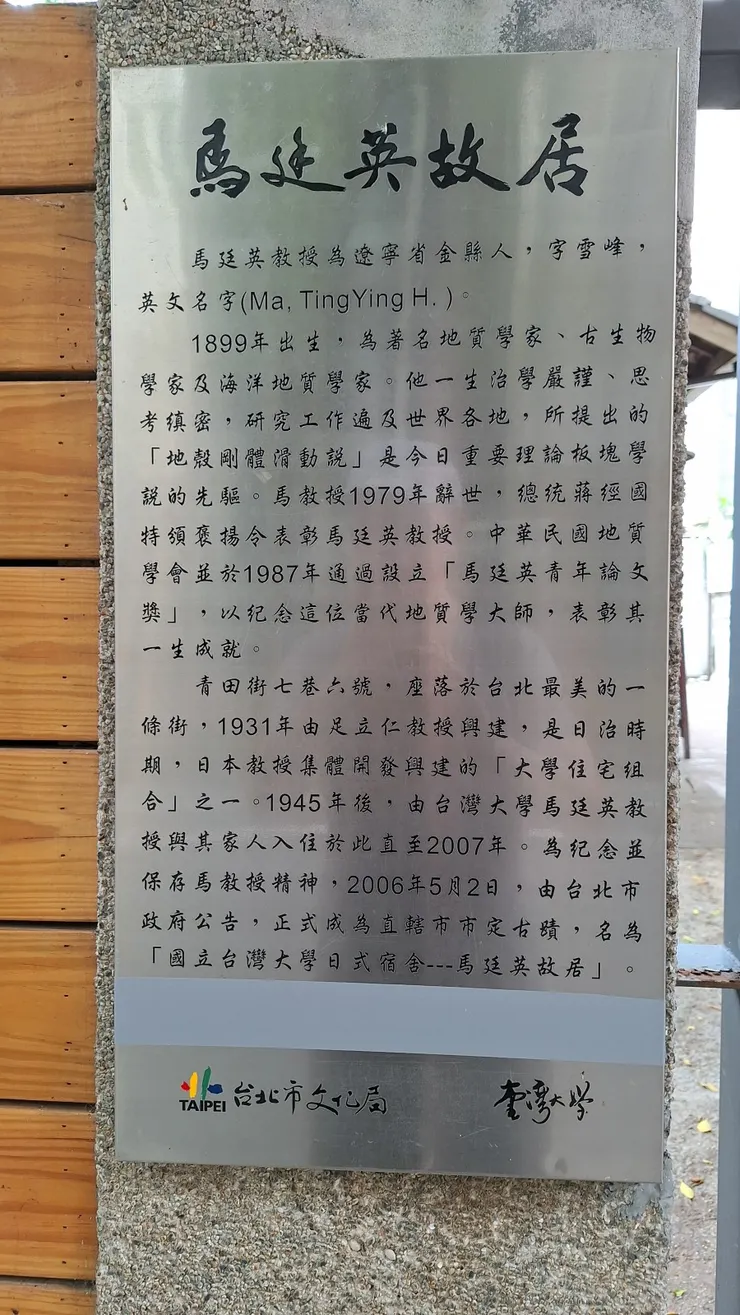 馬廷英故居
馬廷英教授為遼寧省金縣人，字雪峰，
英文名字(Ma, TingYing H. )。
1899年出生，為著名地質學家、古生物
學家及海洋地質學家。他一生治學嚴謹、思
考縝密，研究工作遍及世界各地，所提出的
「地殼剛體滑動說」是今日重要理論板塊學
說的先驅。馬教授1979年辭世，總統蔣經國
特頒褒揚令表彰馬廷英教授。中華民國地質
學會並於1987年通過設立「馬廷英青年論文
獎」，以紀念這位當代地質學大師，表彰其
一生成就。
青田街七巷六號，座落於台北最美的一
條街，1931年由足立仁教授興建，是日治時
期，日本教授集體開發興建的「大學住宅組
合」之一。1945年後，由台灣大學馬廷英教
授與其家人入住於此直至2007年。為紀念並
保存馬教授精神，2006年5月2日，由台北市
政府公告，正式成為直轄市市定古蹟，名為
「國立台灣大學日式宿舍---馬廷英故居」。
TAIPEI 台北市文化局 臺灣大學